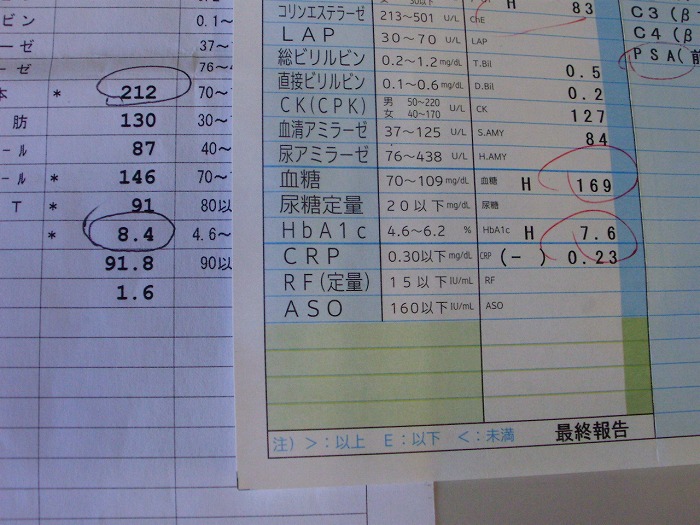 ビン 0.1~
ーゼ 37~
ーゼ 76~4
本 * 212 70~
肪 130 30~
ール 87 40~
ール * 146 70~
T * 91 80以
* 8.4 4.6~
91.8 90以
1.6
H 83
コリンエステラーゼ 213~501 U/L ChE
LAP 30~70 U/L LAP
総ビリルビン 0.2~1.2 mg/dL T.Bil 0.5
直接ビリルビン 0.1~0.6 mg/dL D.Bil 0.2
CK(CPK) 男 50~220 女 40~170 U/L CK 127
血清アミラーゼ 37~125 U/L S.AMY 84
尿アミラーゼ 76~438 U/L H.AMY
血糖 70~109 mg/dL 血糖 H 169
尿糖定量 20以下 mg/dL 尿糖
HbA1c 4.6~6.2 % HbA1c H 7.6
CRP 0.30以下 mg/dL CRP (-) 0.23
RF(定量) 15以下 IU/mL RF
ASO 160以下 IU/mL ASO
注) >:以上 E:以下 <:未満 最終報告
C3(β
C4(β
PSA(前